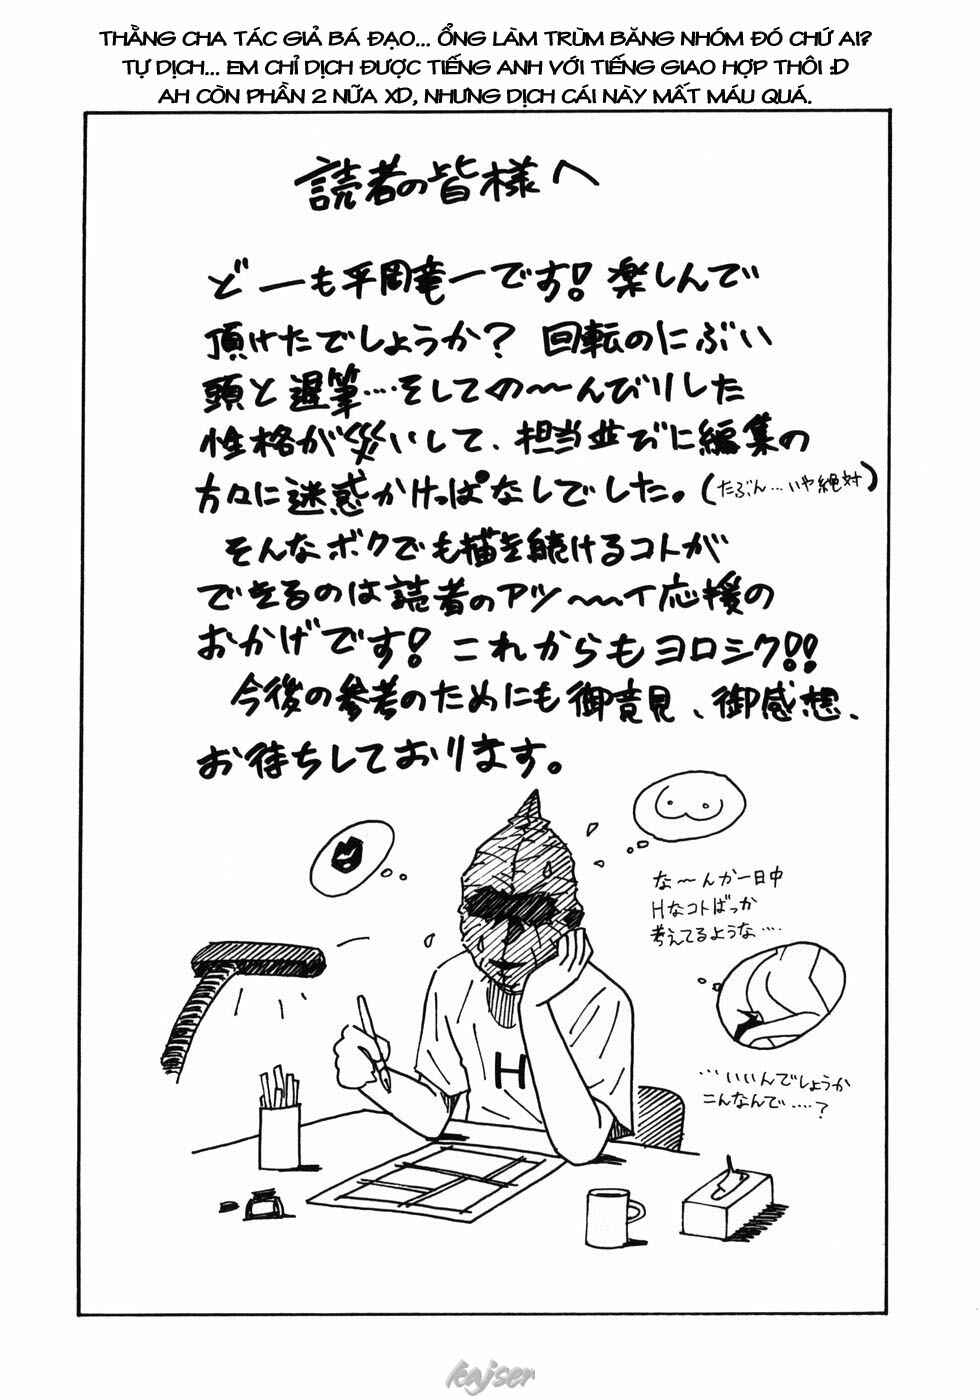 THẰNG CHA TÁC GIẢ BÁ ĐẠO... ỔNG LÀM TRÙM BĂNG NHÓM ĐÓ CHỨ AI?
TỰ DỊCH... EM CHỈ DỊCH ĐƯỢC TIẾNG ANH VỚI TIẾNG GIAO HỢP THÔI :D
AH CÒN PHẦN 2 NỮA XD, NHƯNG DỊCH CÁI NÀY MẤT MÁU QUÁ.
読者の皆様へ
どーも平岡竜一です！楽しんで
頂けたでしょうか？ 回転のにぶい
頭と遅筆…そしての〜んびりした
性格が災いして、担当並びに編集の
方々に迷惑かけっぱなしでした。(たぶん…いや絶対)
そんなボクでも描き続けるコトが
できるのは読者のアツ〜〜イ応援の
おかげです！これからもヨロシク!!
今後の参考のためにも御意見、御感想、
お待ちしております。
な〜んか一日中
Hなコトばっか
考えてるような….
…いいんでしょうか
こんなんで….?
H
kajser